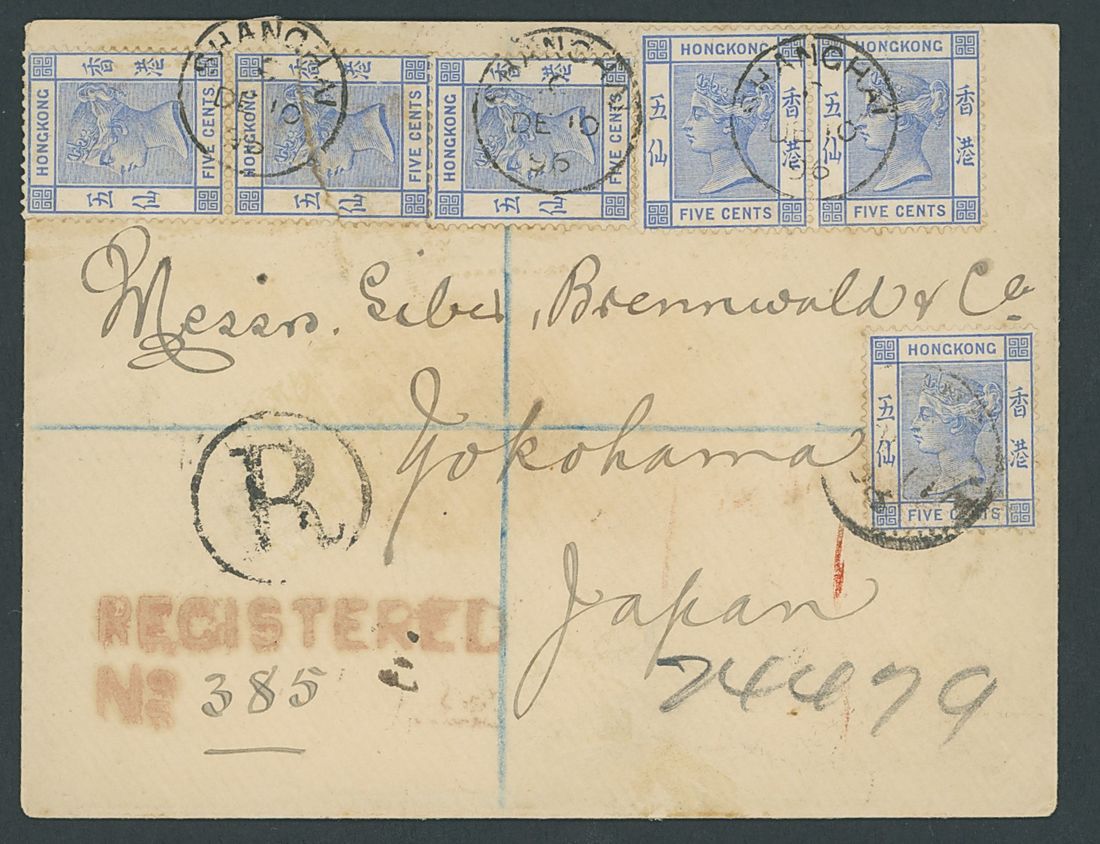 HONGKONG 香港 FIVE CENTS 五仙
HONGKONG 香港 FIVE CENTS 五仙
HONGKONG 香港 FIVE CENTS 五仙
HONGKONG 香港 五仙 FIVE CENTS
HONGKONG 香港 五仙 FIVE CENTS
SHANGHAI
C
DE 10
96
SHANGHAI
C
DE 10
96
SHANGHAI
C
DE 10
96
Messrs. Siber, Brennwald & Co
HONGKONG
香港 五仙
FIVE CENTS
Yokohama
R
Japan
REGISTERED
No 385
74479